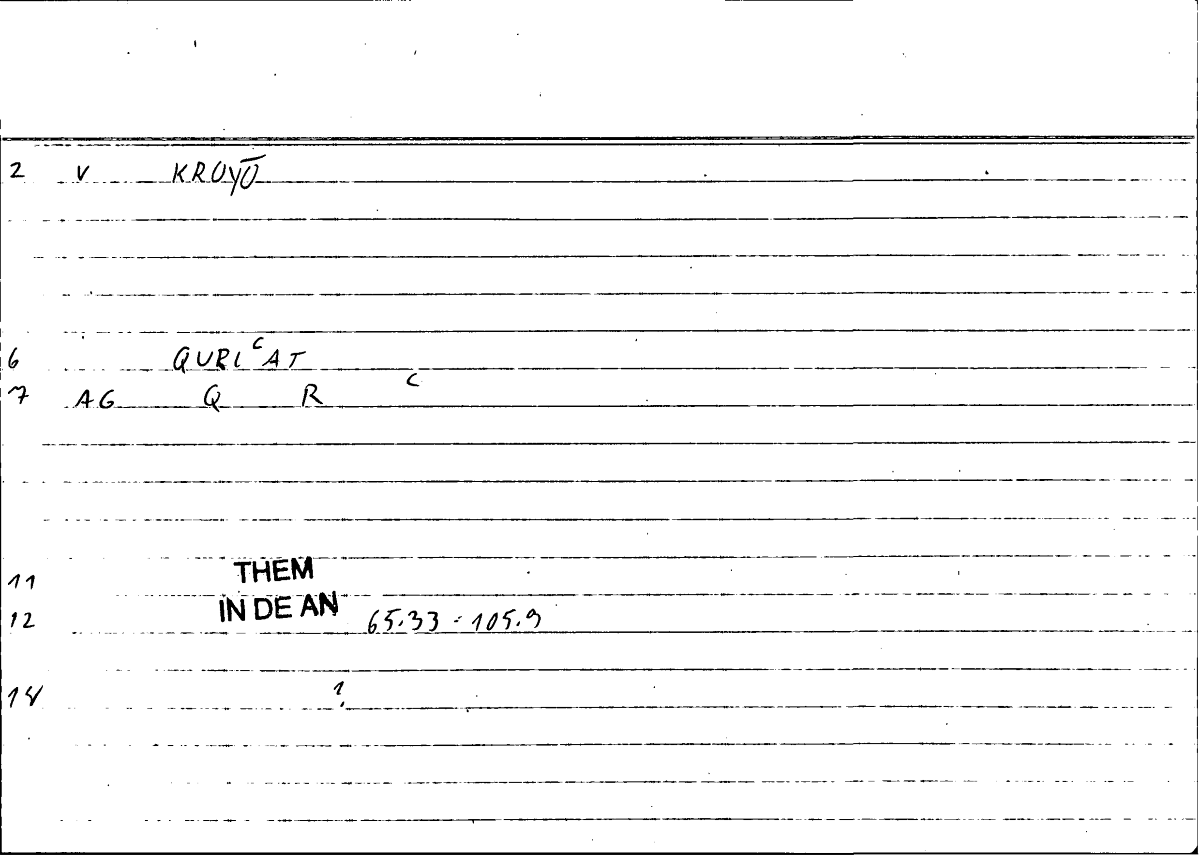 2 V KROYŌ
6 QURIᶜAT
7 AG Q R ᶜ
11 THEM
12 IN DE AN 65.33 - 105.9
14 1.